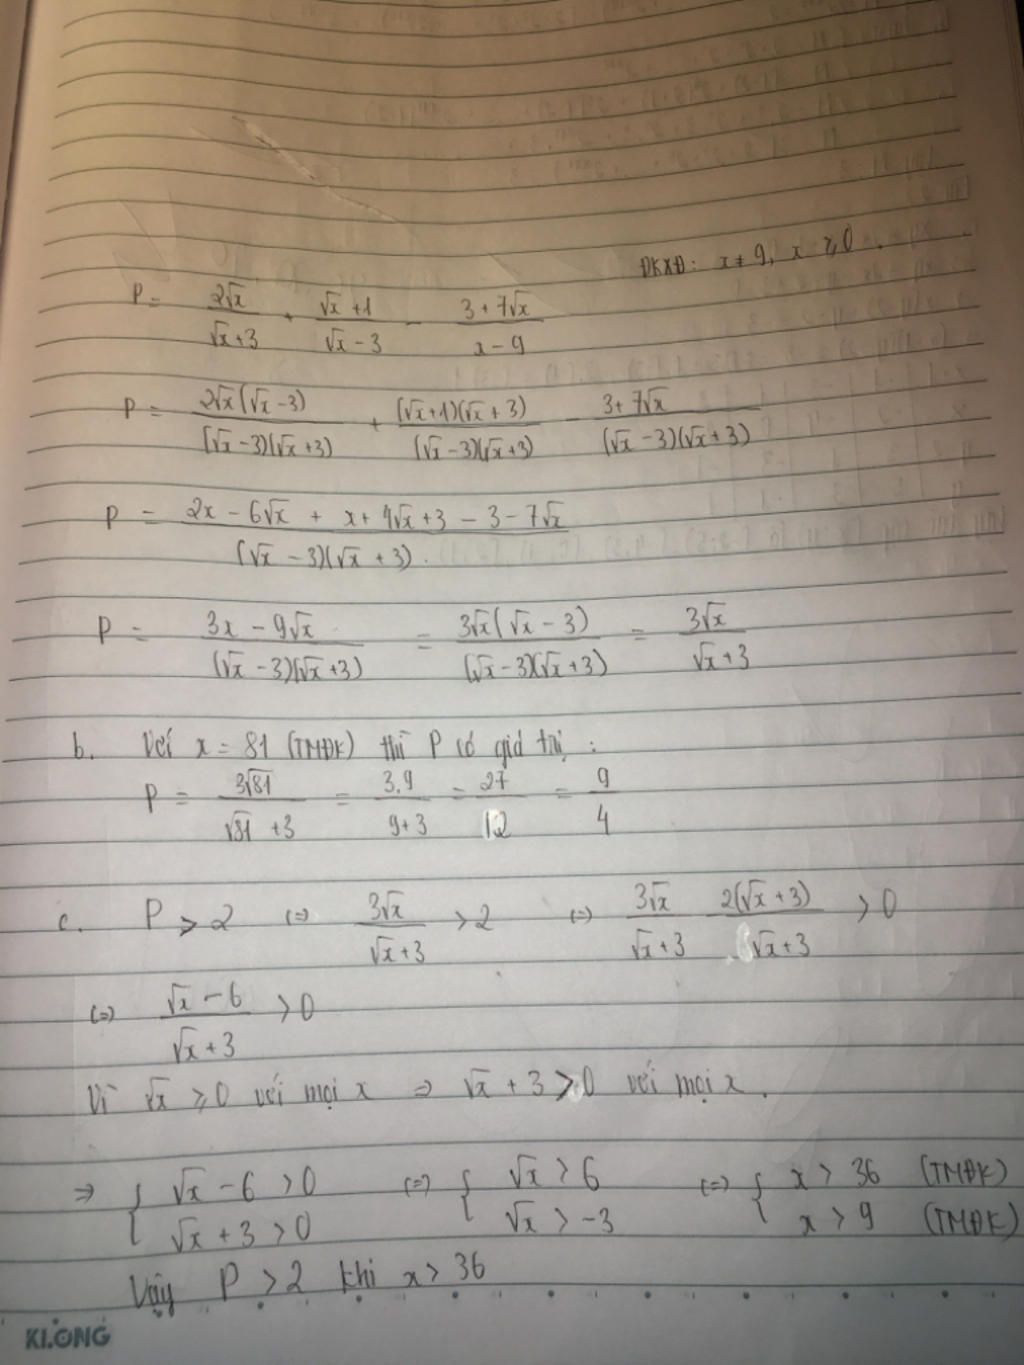 ĐKXĐ: x ≠ 9, x ≥ 0.
P = 2√x/(√x+3) + (√x+1)/(√x-3) - (3+7√x)/(x-9)
P = 2√x(√x-3)/((√x-3)(√x+3)) + (√x+1)(√x+3)/((√x-3)(√x+3)) - (3+7√x)/((√x-3)(√x+3))
P = (2x - 6√x + x + 4√x + 3 - 3 - 7√x)/((√x-3)(√x+3)).
P = (3x - 9√x)/((√x-3)(√x+3)) = 3√x(√x-3)/((√x-3)(√x+3)) = 3√x/(√x+3)
b. Với x = 81 (TMĐK) thì P có giá trị:
P = 3√81/(√81+3) = 3.9/(9+3) = 27/12 = 9/4
c. P > 2 (=) 3√x/(√x+3) > 2 (=) 3√x/(√x+3) 2(√x+3)/(√x+3) > 0
(=) (√x-6)/(√x+3) > 0
Vì √x ≥ 0 với mọi x ⇒ √x + 3 > 0 với mọi x.
⇒ { √x - 6 > 0 (=) { √x > 6 (=) { x > 36 (TMĐK)
√x + 3 > 0 √x > -3 x > 9 (TMĐK)
Vậy P > 2 khi x > 36
KLONG